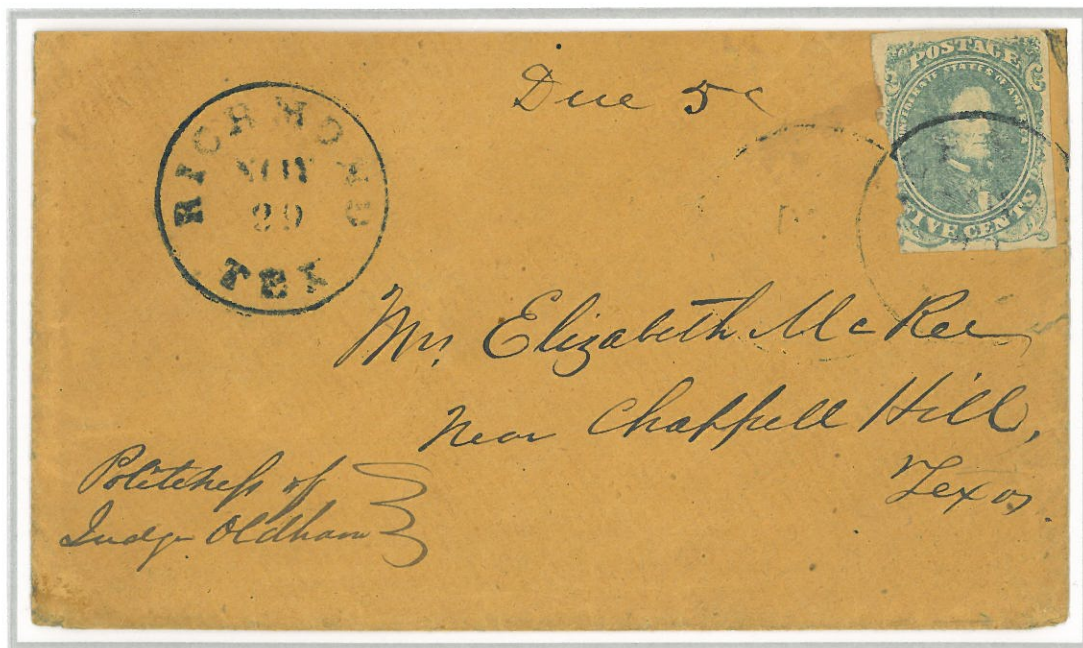 Due 5c
POSTAGE
CONFEDERATE STATES OF AMERICA
FIVE CENTS
RICHMOND
NOV
29
TEX
Mrs. Elizabeth McRee
near Chappell Hill,
Texas.
Politeness of
Judge Oldham